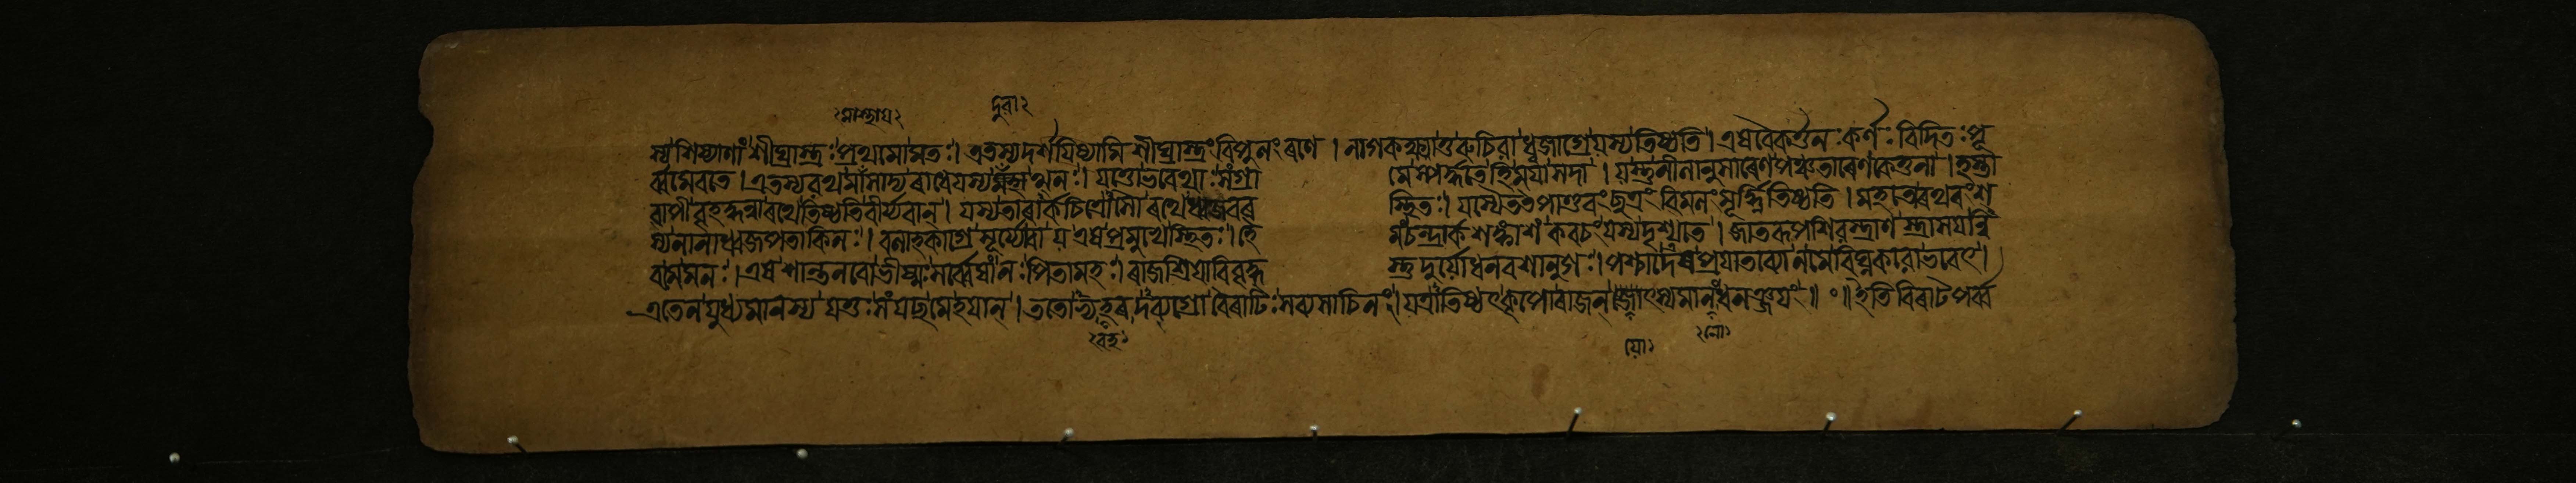 মাস্থায় দুরা
স্য শিষ্যাণাং শীঘ্রাস্ত্রঃ প্রথমো মতঃ। এতস্য দর্শযিষ্যামি শীঘ্রাস্ত্রং বিপুলং ৰণে। নাগকক্ষ্যা তু ৰুচিরা ধ্বজাগ্রে যস্য তিষ্ঠতি। এষ বৈকর্তনঃ কর্ণঃ বিদিতঃ পূ
র্ব্বমেব তে। এতস্য ৰথমা ৰাধেযস্য মহাত্মনঃ। যত্তো ভবেথাঃ সংগ্রা মে স্পর্দ্ধতে মযা সদা। যস্তু নীলানুসারেণ পঞ্চতাৰেণ কেতুনা। হস্তা
বাপী বৃহদ্ধন্বা ৰথে তিষ্ঠতি বীর্য্যবান্। যস্য তাৰার্কচিত্রোঽসৌ ৰথে ধ্বজবর স্থিতঃ। যস্যৈতৎ পাণ্ডুৰং ছত্রং বিমলং মূর্দ্ধ্নি তিষ্ঠতি। মহতো ৰথবংশ
স্য নানাধ্বজপতাকিনঃ। বলাহকাগ্রে সূর্য্যো বা য এষ প্রমুখে স্থিতঃ। হৈ মং চন্দ্রার্কশঙ্কাশং কবচং যস্য দৃশ্যতে। জাতৰূপশিৰস্ত্রাণ স্ত্রাসযন্নি
ব মে মনঃ। এষ শান্তনবো ভীষ্মঃ সর্ব্বেষাং নঃ পিতামহঃ। ৰাজশ্রিযা বিবৃদ্ধ স্তু দুর্য্যোধনবশানুগঃ। পশ্চাদেষ প্রযাতব্যো ন মে বিঘ্নকৰো ভবেৎ।
এতেন যুধ্যমানস্য যত্তঃ সংযচ্ছ মে হযান্। ততো ঽভ্যবহদব্যগ্রো বৈৰাটিঃ সব্যসাচিনং। যত্রাতিষ্ঠৎ কৃপো ৰাজন্ যোৎস্যমানং ধনঞ্জযং॥ ॥ ইতি বিৰাটপর্ব্ব
বহ যো নো